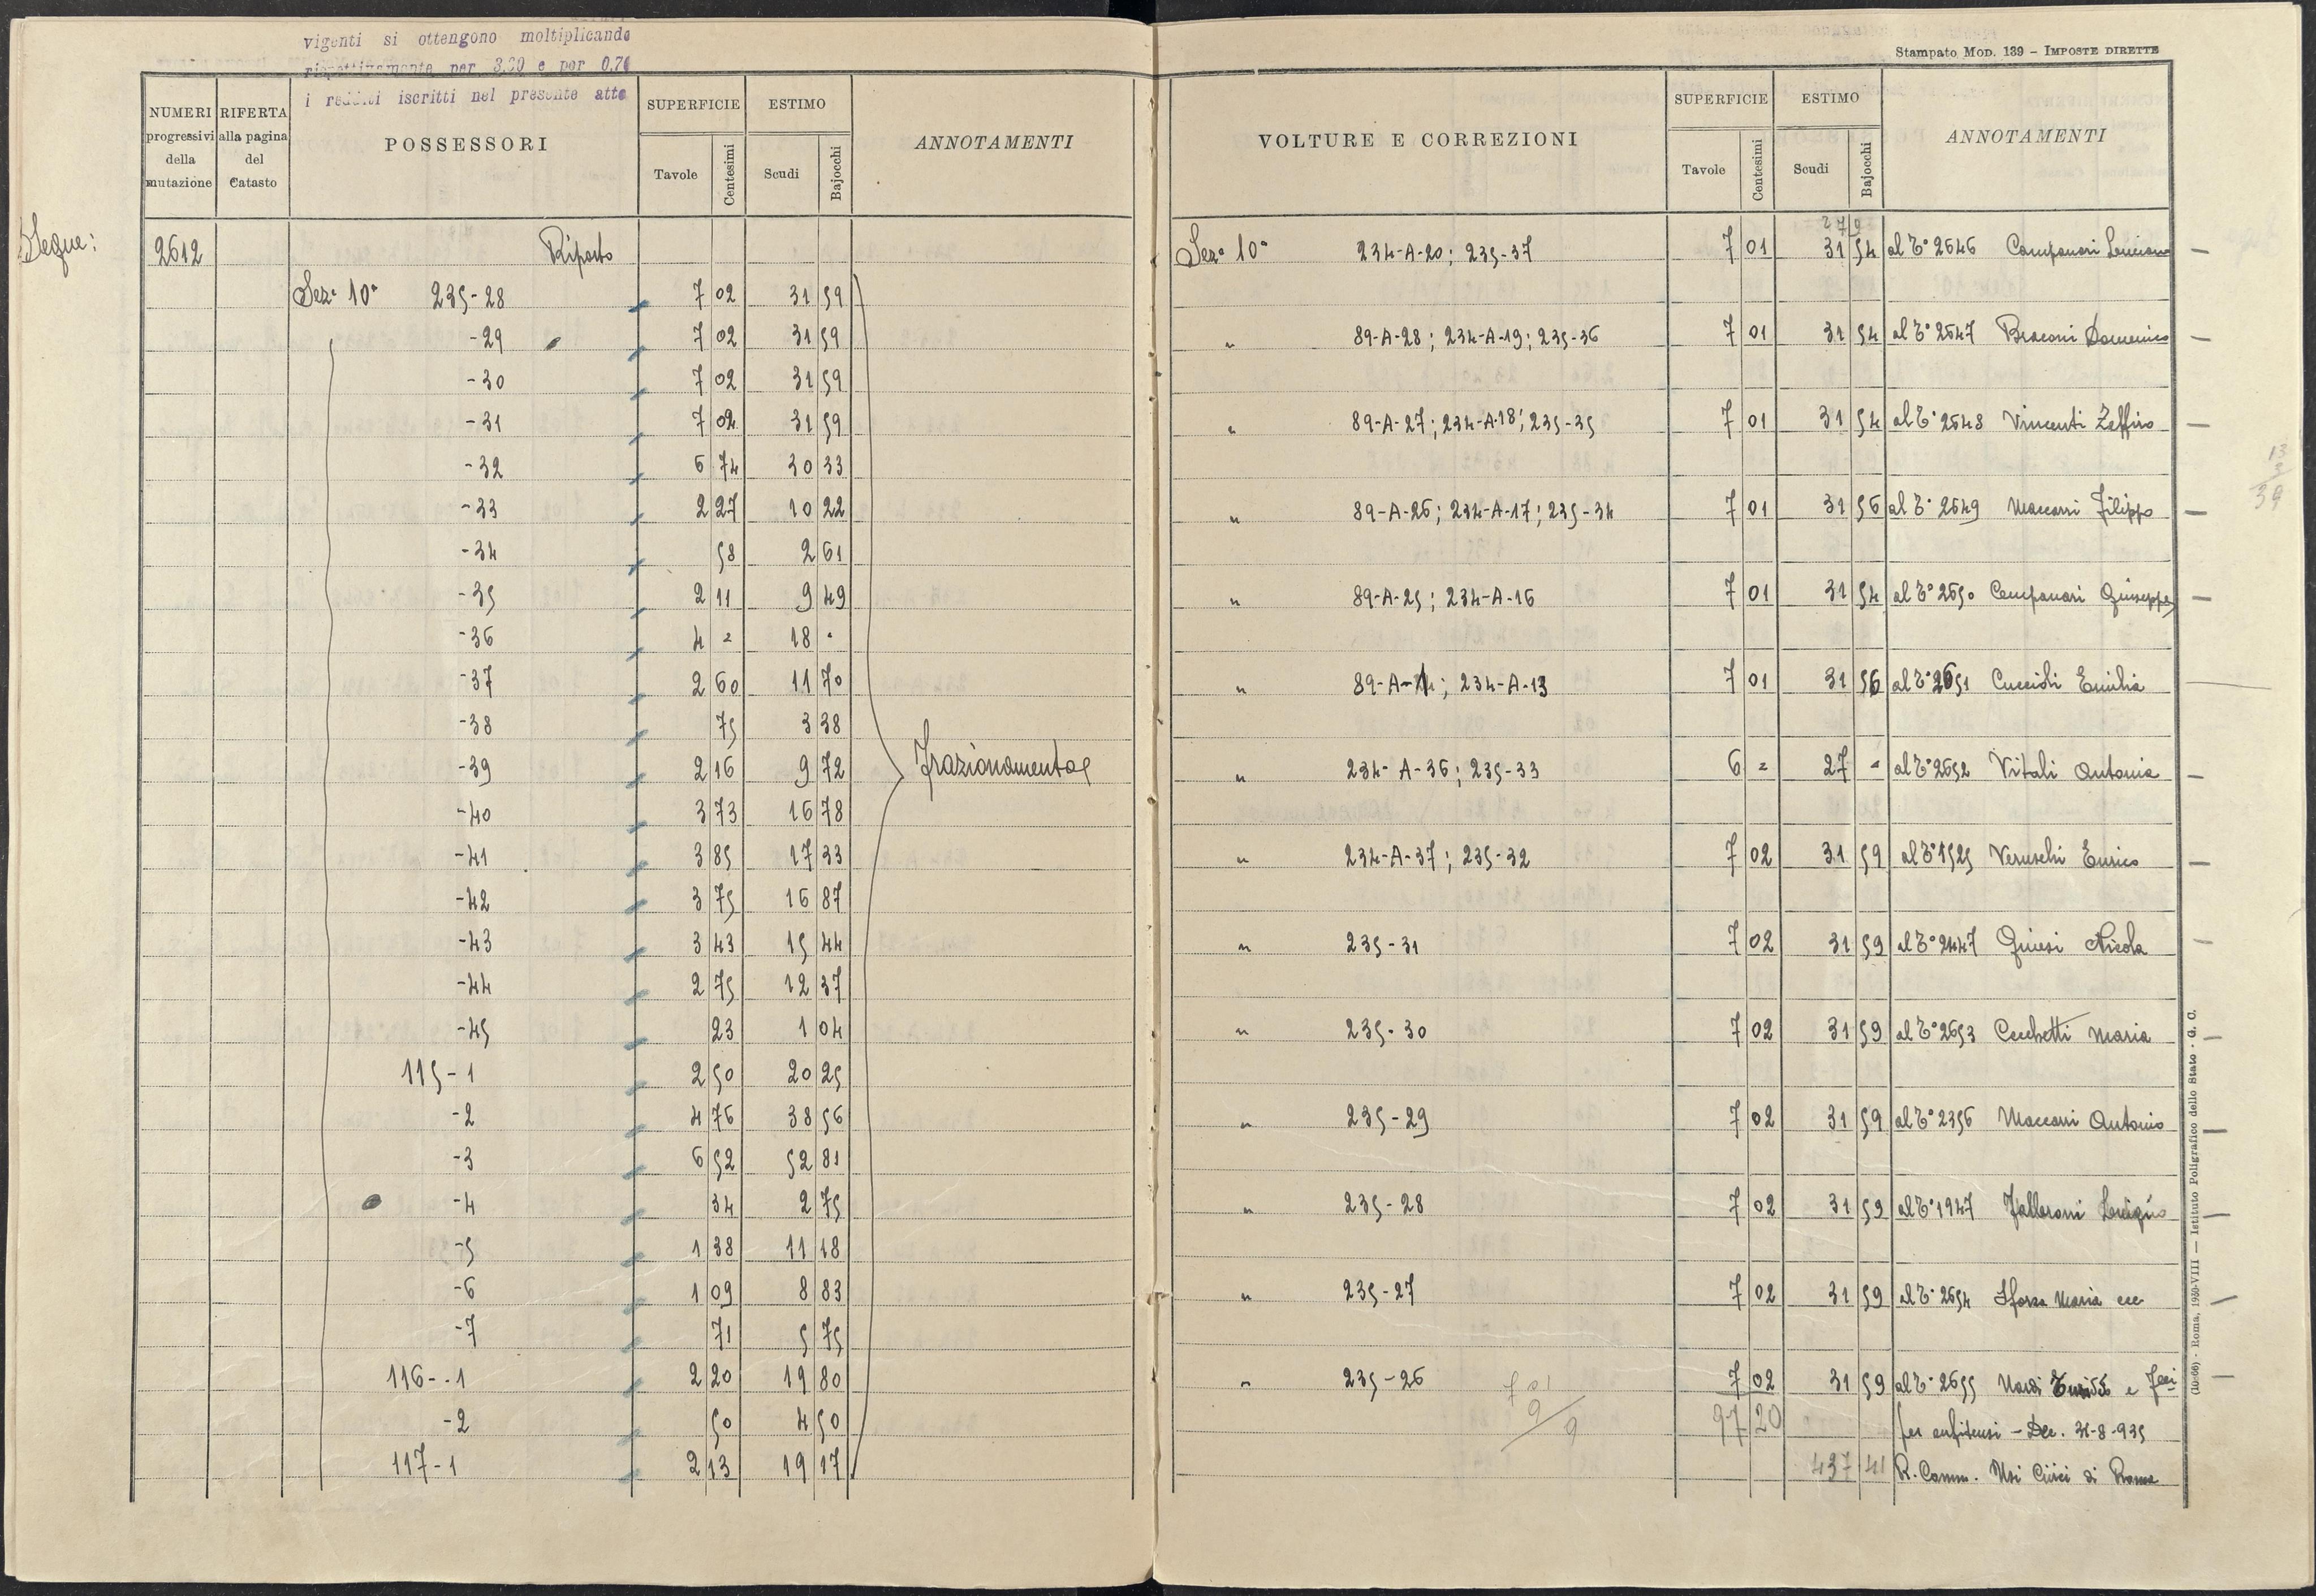 vigenti si ottengono moltiplicando
rispettivamente per 3.30 e per 0.70
i redditi iscritti nel presente atto
NUMERI progressivi della mutazione
RIFERTA alla pagina del Catasto
POSSESSORI
SUPERFICIE Tavole Centesimi
ESTIMO Scudi Bajocchi
ANNOTAMENTI
Segue: 2612 Riporto
Sez. 10ª 235-28 7 02 31 59
-29 7 02 31 59
-30 7 02 31 59
-31 7 02 31 59
-32 6 74 30 33
-33 2 27 10 22
-34 58 2 61
-35 2 11 9 49
-36 4 = 18 "
-37 2 60 11 70
-38 75 3 38
-39 2 16 9 72 Frazionamento
-40 3 73 16 78
-41 3 85 17 33
-42 3 75 16 87
-43 3 43 15 44
-44 2 75 12 37
-45 23 1 04
115-1 2 50 20 25
-2 4 76 38 56
-3 6 52 52 81
-4 34 2 75
-5 1 38 11 18
-6 1 09 8 83
-7 71 5 75
116-1 2 20 19 80
-2 50 4 50
117-1 2 13 19 17
Stampato Mod. 139 - IMPOSTE DIRETTE
VOLTURE E CORREZIONI
SUPERFICIE Tavole Centesimi
ESTIMO Scudi Bajocchi
ANNOTAMENTI
Sez. 10ª 234-A-20; 235-37 7 01 31 54 al T° 2646 Campanari Luciano
" 89-A-28; 234-A-19; 235-36 7 01 31 54 al T° 2647 Braconi Domenico
" 89-A-27; 234-A-18; 235-35 7 01 31 54 al T° 2648 Vincenti Zeffiro
" 89-A-26; 234-A-17; 235-34 7 01 31 56 al T° 2649 Maccarri Filippo
" 89-A-25; 234-A-16 7 01 31 54 al T° 2650 Campanari Giuseppe
" 89-A-; 234-A-13 7 01 31 56 al T° 2651 Cuccioli Emilia
" 234-A-36; 235-33 6 = 27 = al T° 2652 Vitali Antonia
" 234-A-37; 235-32 7 02 31 59 al T° 1525 Veruschi Enrico
" 235-31 7 02 31 59 al T° 2447 Nicola
" 235-30 7 02 31 59 al T° 2653 Cecchetti Maria
" 235-29 7 02 31 59 al T° 2356 Maccarri Antonio
" 235-28 7 02 31 59 al T° 1947
" 235-27 7 02 31 59 al T° 2654 Sforza Maria ecc
" 235-26 7 02 31 59 al T° 2655 Nardi e
97 20 per enfiteusi - Dec. 31-8-935
437 41 R. Comm. Usi Civici di Roma
13
3
39
(10666) - Roma, 1930-VIII — Istituto Poligrafico dello Stato - G. C.